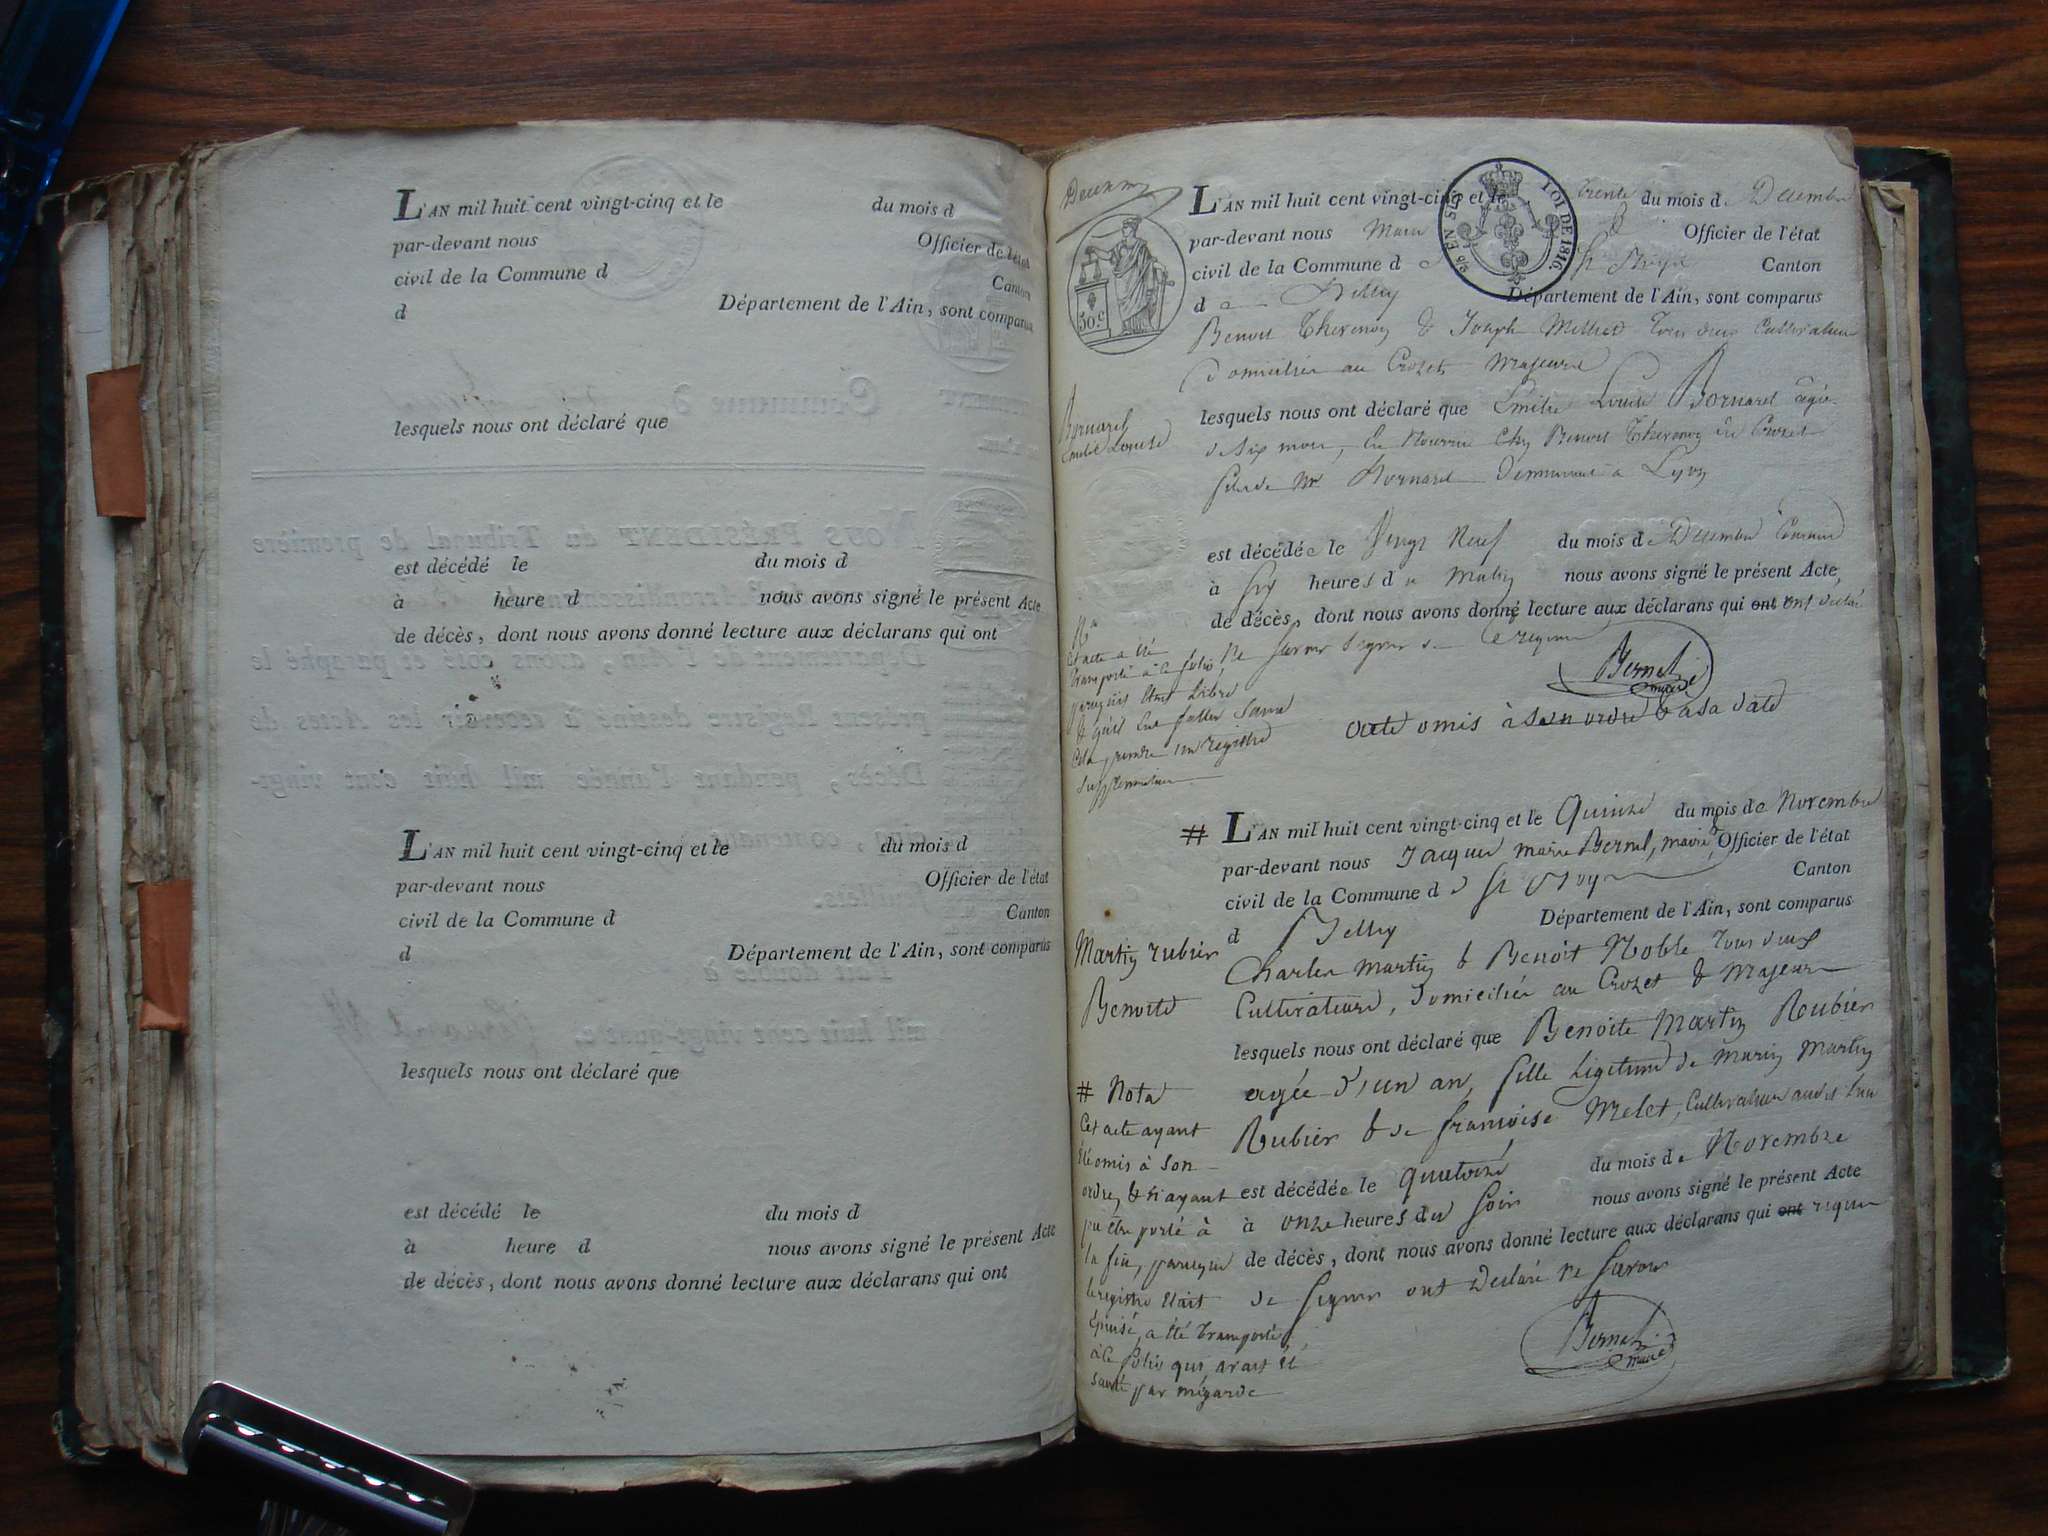 L'AN mil huit cent vingt-cinq et le du mois d
par-devant nous Officier de l'état
civil de la Commune d Canton
d Département de l'Ain, sont comparus
lesquels nous ont déclaré que
est décédé le du mois d
à heure d nous avons signé le présent Acte
de décès, dont nous avons donné lecture aux déclarans qui ont
L'AN mil huit cent vingt-cinq et le du mois d
par-devant nous Officier de l'état
civil de la Commune d Canton
d Département de l'Ain, sont comparus
lesquels nous ont déclaré que
est décédé le du mois d
à heure d nous avons signé le présent Acte
de décès, dont nous avons donné lecture aux déclarans qui ont
50.c
EN SUS
LOI DE 1816.
L'AN mil huit cent vingt-cinq et le trente du mois de Decembre
par-devant nous Maire Officier de l'état
civil de la Commune d Canton
d Belley Département de l'Ain, sont comparus
Benoit Thevenoy & Joseph Milliet tous deux Cultivateurs
domiciliés au Crozet Majeurs
Bornarel
Emilie Louise
lesquels nous ont déclaré que Emilie Louise Bornarel agée
de six mois, en Nourrice chez Benoit Thevenoy du Crozet
fille de Mr Bornarel Demeurant à Lyon
est décédée le Vingt Neuf du mois de Decembre Courant
à six heures du Matin nous avons signé le présent Acte
de décès, dont nous avons donné lecture aux déclarans qui ont ont declaré
Ne savoir signer de ce requis
Bernel
maire
Cet acte a été
transporté à ce folio
parcequ'il était libre
& qu'il eut fallu sans
cela prendre un registre
supplementaire
acte omis à son ordre & a sa date
# L'AN mil huit cent vingt-cinq et le Quinze du mois de Novembre
par-devant nous Jacques marie Bernel, maire, Officier de l'état
civil de la Commune d Canton
d Belley Département de l'Ain, sont comparus
Martin rubier
Benoite
Charles Martin & Benoit Noble tous deux
Cultivateurs, Domiciliés au Crozet & Majeurs
lesquels nous ont déclaré que Benoite Martin Rubier
agée d'un an, fille Legitime de Marin Martin
Rubier & de françoise Melet, Cultivateurs audit lieu
est décédée le quatorze du mois de Novembre
à onze heures du soir nous avons signé le présent Acte
de décès, dont nous avons donné lecture aux déclarans qui ont requis
de signer ont Declaré ne savoir
Bernel
maire
# Nota
Cet acte ayant
été omis à son
ordre, & n'ayant
pu être porté à
la fin, parceque
le registre était
épuisé, a été transporté
à ce folio qui avait été
sauté par mégarde